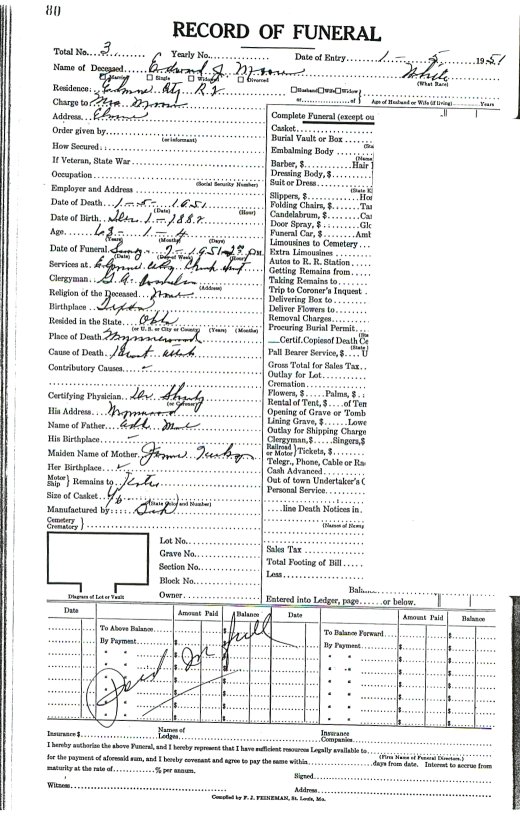 80
RECORD OF FUNERAL
Total No. 3 Yearly No. Date of Entry 1 - 5 1951
Name of Deceased Edward J. Moore White
Married Single Widowed Divorced (What Race)
Residence: R 2 Husband Wife Widow
or of Age of Husband or Wife (if living) Years
Charge to Mrs Moore
Address
Order given by
(or informant)
How Secured:
If Veteran, State War
Occupation
(Social Security Number)
Employer and Address
Date of Death 1-5-1951
(Date) (Hour)
Date of Birth 1-188
Age 63-1-4
(Years) (Months) (Days)
Date of Funeral 7-1951 2 PM
(Date) (Day of Week) (Hour)
Services at
(Address)
Clergyman
Religion of the Deceased None
Birthplace
Resided in the State Okla
(or U. S. or City or County) (Years) (Months)
Place of Death Wynnewood
Cause of Death Heart attack
Contributory Causes
Certifying Physician Dr.
(or Coroner)
His Address Wynnewood
Name of Father
His Birthplace
Maiden Name of Mother
Her Birthplace
Motor Ship } Remains to
Size of Casket 6/6
(State Color and Number)
Manufactured by
Cemetery Crematory }
Lot No.
Grave No.
Section No.
Block No.
Owner
Diagram of Lot or Vault
Complete Funeral (except ou
Casket
Burial Vault or Box
(Sta
Embalming Body
(Name
Barber, $ Hair
Dressing Body, $
Suit or Dress
(State K
Slippers, $ Hos
Folding Chairs, $ Ta
Candelabrum, $ Ca
Door Spray, $ Glo
Funeral Car, $ Am
Limousines to Cemetery
Extra Limousines
Autos to R. R. Station
Getting Remains from
Taking Remains to
Trip to Coroner's Inquest
Delivering Box to
Deliver Flowers to
Removal Charges
Procuring Burial Permit
Certif. Copies of Death Ce
(State
Pall Bearer Service, $
Gross Total for Sales Tax
Outlay for Lot
Cremation
Flowers, $ Palms, $
Rental of Tent, $ of Ten
Opening of Grave or Tomb
Lining Grave, $ Lowe
Outlay for Shipping Charge
Clergyman, $ Singers, $
Railroad or Motor } Tickets, $
Telegr., Phone, Cable or Ra
Cash Advanced
Out of town Undertaker's C
Personal Service
line Death Notices in
(Names of Newsp
Sales Tax
Total Footing of Bill
Less
Balan
Entered into Ledger, page or below.
Date Amount Paid Balance Date Amount Paid Balance
To Above Balance $ To Balance Forward $
By Payment $ By Payment $
Paid in full
Insurance $ Names of Lodges Insurance Companies
I hereby authorize the above Funeral, and I hereby represent that I have sufficient resources Legally available to
(Firm Name of Funeral Directors.)
for the payment of aforesaid sum, and I hereby covenant and agree to pay the same within days from date. Interest to accrue from
maturity at the rate of % per annum. Signed
Witness Address
Compiled by F. J. FEINEMAN, St. Louis, Mo.